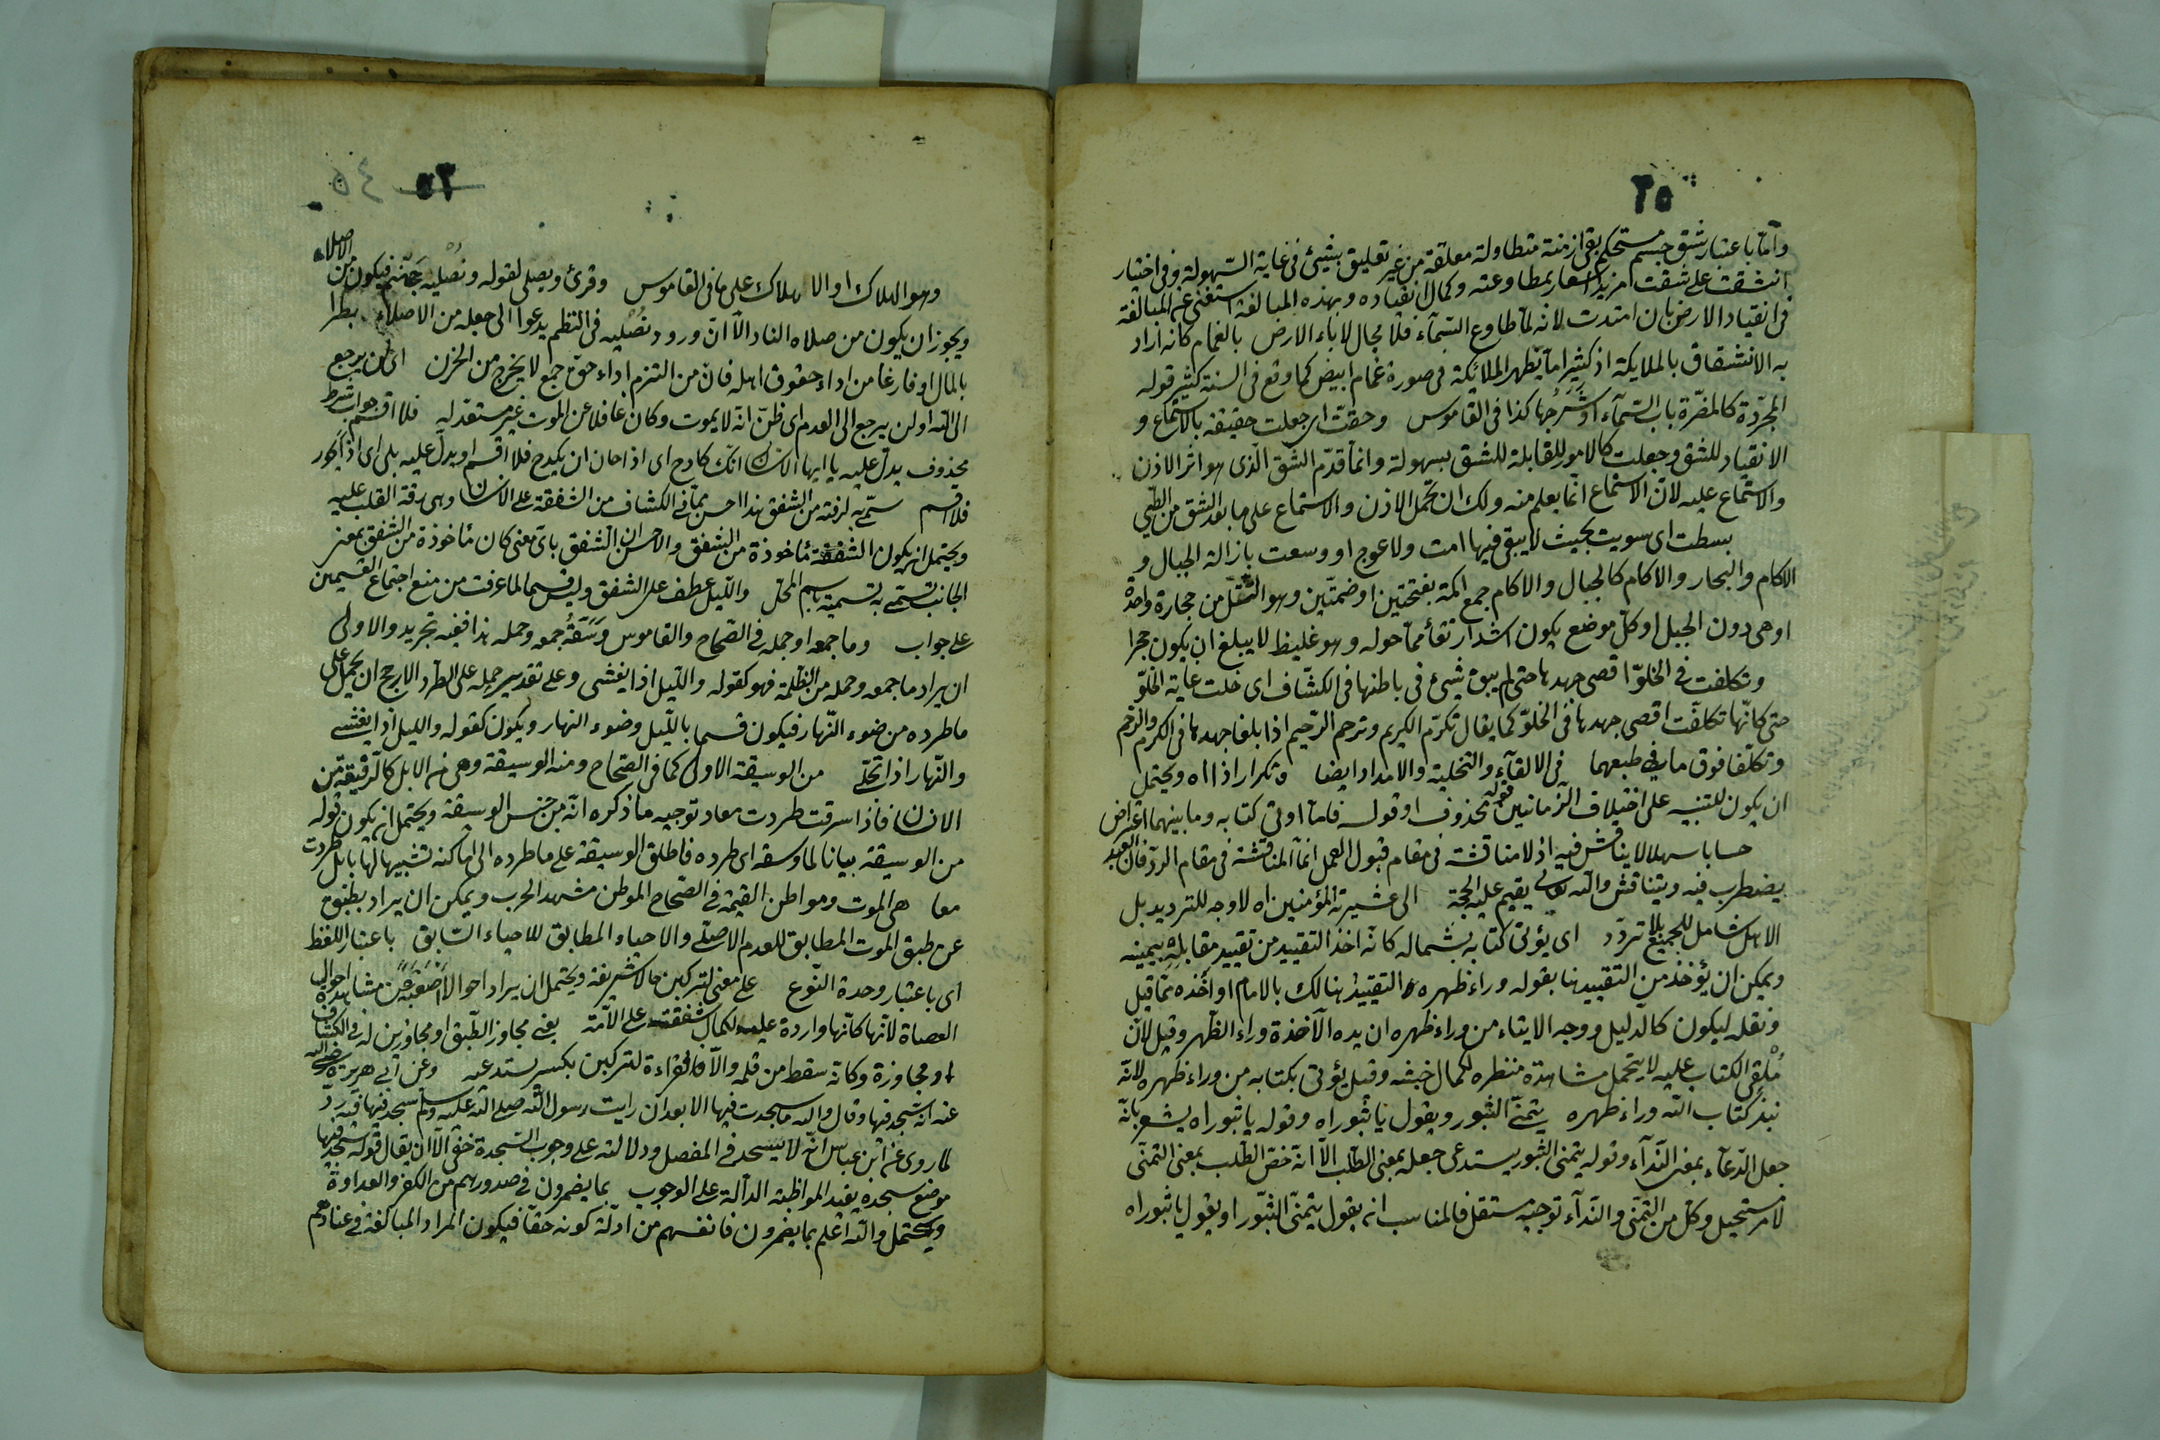 ٣٥
وأما باعتبار شق جسم مستحكم بقى ازمنة متطاولة معلقة من غير تعليق بشيئ فى غاية السهولة وفى اختيار
انشقت على شقت مزيد اشعار بمطاوعته وكمال انقياده وبهذه المبالغة استغنى عن المبالغة
فى انقياد الارض بان امتدت لانه لما طاوع السمآء فلا مجال لاباء الارض بالغمام كانه اراد
به الانشقاق بالملايكة اذ كثيرا ما يظهر الملائكة فى صورة غمام ابيض كما وقع فى السنة كثير قوله
المجرّة كالمضرّة باب السّمآء او شرجها كذا فى القاموس وحقّت اى جعلت حقيقة بالاستماع و
الانقياد للشق وجعلت كالامور القابلة للشق بسهولة وانما قدّم الشّق الّذى هو اثر الاذن
والاستماع عليه لانّ الاستماع انّما يعلم منه ولك ان تحمل الاذن والاستماع على ما بعد الشق من الطّى
بسطت اى سويت بحيث لا يبقى فيها امت ولا عوج او وسعت بازالة الجبال و
الاكام والبحار والاكام كالجبال والاكام جمع اكمة بفتحتين او ضمّتين وهو التّلّ من حجارة واحدة
او هى دون الجبل او كلّ موضع يكون اشد ارتفأ ممّا حوله وهو غليظ لا يبلغ ان يكون حجرا
وتكلفت فى الخلوّ اقصى جهدها حتى لم يبق شيئ فى باطنها فى الكشّاف اى خلت غاية الخلوّ
حتى كانّها تكلّفت اقصى جهدها فى الخلوّ كما يقال تكرّم الكريم وترحم الرّحيم اذا بلغا جهدهما فى الكرم والرحم
وتكلّفا فوق ما فى طبعهما فى الالقآء والتخلية والامداد ايضا وتكرار اذا اه ويحتمل
ان يكون للتنبيه على اختلاف الزمانين قوله محذوف او قوله فامّا اوتى كتابه وما بينهما اعتراض
حسابا سهلا لا يناقش فيه اذ لا مناقشة فى مقام قبول العمل انّما المناقشة فى مقام الردّ فان العبد
يضطرب فيه ويتناقش والله تعالى يقيم عليه الحجة الى عشيرته المؤمنين اه لا وجه للترديد بل
الاهل شامل للجميع بلا تردّد اى يؤتى كتابه بشماله كانه اخذ التقييد من تقييد مقابله بيمينه
ويمكن ان يؤخذ من التقييد هنا بقوله وراء ظهره التقييد هنالك بالامام او اخذه ممّا قيل
ونقله ليكون كالدّليل ووجه الايتاء من وراء ظهره ان يده الآخذة وراء الظّهر وقيل لانّ
مُلْقى الكتاب عليه لا يتحمل مشاهدة منظره لكمال خبثه وقيل يؤتى بكتابه من وراء ظهره لانّه
نبذ كتاب الله وراء ظهره يتمنّى الثبور ويقول يا ثبوراه وقوله يا ثبوراه يشعر بانّه
جعل الدّعآء بمعنى النّدآء وقوله يتمنى الثبور يستدعى جعله بمعنى الطّلب الّا انّه خصّ الطّلب بمعنى التمنّى
لامر مستحيل وكلّ من التمنّى والنّدآء توجيه مستقلّ فالمناسب ان يقول يتمنّى الثّبور او يقول يا ثبوراه
٣٥
وهو الهلاك او الاهلاك على ما فى القاموس وقرئ ويصلى لقوله ونُصْليه جهنّم فيكون من الاصلاء
ويجوز ان يكون من صلاه النار الّا انّ ورود نصليه فى النظم يدعوا الى جعله من الاصلاء بطرا
بالمال او فارغا من اداء حقوق اهله فانّ من التزم اداء حقّ جمع لا يخرج من الحزن اى لن يرجع
الى الله او لن يرجع الى العدم اى ظنّ انّه لا يموت وكان غافلا عن الموت غير مستعد له فلا اقسم جواب شرط
محذوف يدلّ عليه يا ايها الانسان انك كادح اى اذا حان ان يكدح فلا اقسم او يدلّ عليه بلى اى اذا يحور
فلا اقسم سمّى به لرقته من الشفق هذا احسن ممّا فى الكشاف من الشفقة على الانسان وهى رقة القلب عليه
ويحتمل ان يكون الشفقة مأخوذة من الشفق والاحسن ان الشفق باىّ معنى كان مأخوذة من الشفق بمعنى
الجانب تسمّى به تسميته باسم المحلّ والليل عطف على الشفق وليس قسما لما عرفت من منع اجتماع القسمين
على جواب وما جمعه او جمله فى الصّحاح والقاموس وَسَقَهُ جمعه وحمله هذا ففيه تجريد والاولى
ان يراد ما جمعه وحمله من الظّلمة فهو كقوله والليل اذا يغشى وعلى تقدير حمله على الطّرد الارجح ان يحمل على
ما طرده من ضوء النّهار فيكون قسما بالليل وضوء النهار ويكون كقوله والليل اذا يغشى
والنّهار اذا تجلّى من الوسيقة الاولى كما فى الصّحاح ومنه الوسيقة وهى من الابل كالرّفيقة من
الانسان فاذا سرقت طردت معا وتوجيه ما ذكره انّه من جنس الوسيقة ويحتمل ان يكون قوله
من الوسيقة بيانا لما وسقه اى طرده فاطلق الوسيقة على ما طرده الى اماكنه تشبيها لها بابل طردت
معا هى الموت ومواطن القيمة فى الصّحاح الموطن مشهد الحرب ويمكن ان يراد بطبق
عن طبق الموت المطابق للعدم الاصلى والاحياء المطابق للاحياء السّابق باعتبار اللفظ
اى باعتبار وحدة النّوع على معنى لتركبن حالا شريفة ويحتمل ان يراد احوالا صَعْبَةً من مشاهدة احوال
العصاة لانّها كانّها واردة عليه لكمال شفقته على الامّة يعنى مجاوز الطّبق او مجاوزين له فى الكشاف
او مجاوزة وكانه سقط من قلمه والّا فالقراءة لتركبن بكسر يستدعيه وعن ابى هريرة رضى الله
عنه انه سجد فيها وقال والله ما سجدت فيها الا بعد ان رايت رسول الله صلى الله عليه وسلم سجد فيها فيه ردّ
لما روى عن ابن عباس انّه لا يسجد فى المفصل ودلالته على وجوب السّجدة خفى الّا ان يقال قوله سجد فيها
موضع سجده يفيد المواظبة الدّالة على الوجوب بما يضمرون فى صدورهم من الكفر والعداوة
ويحتمل والله اعلم بما يضمرون فانفسهم من ادلّة كونه حقّا فيكون المراد المبالغة فى عنادهم